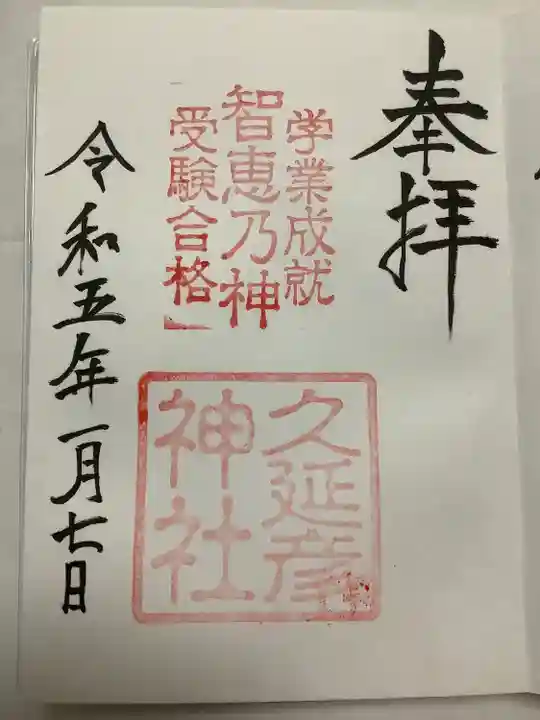 奉拝
学業成就
智恵乃神
受験合格」
久延彦
神社
令和五年一月七日